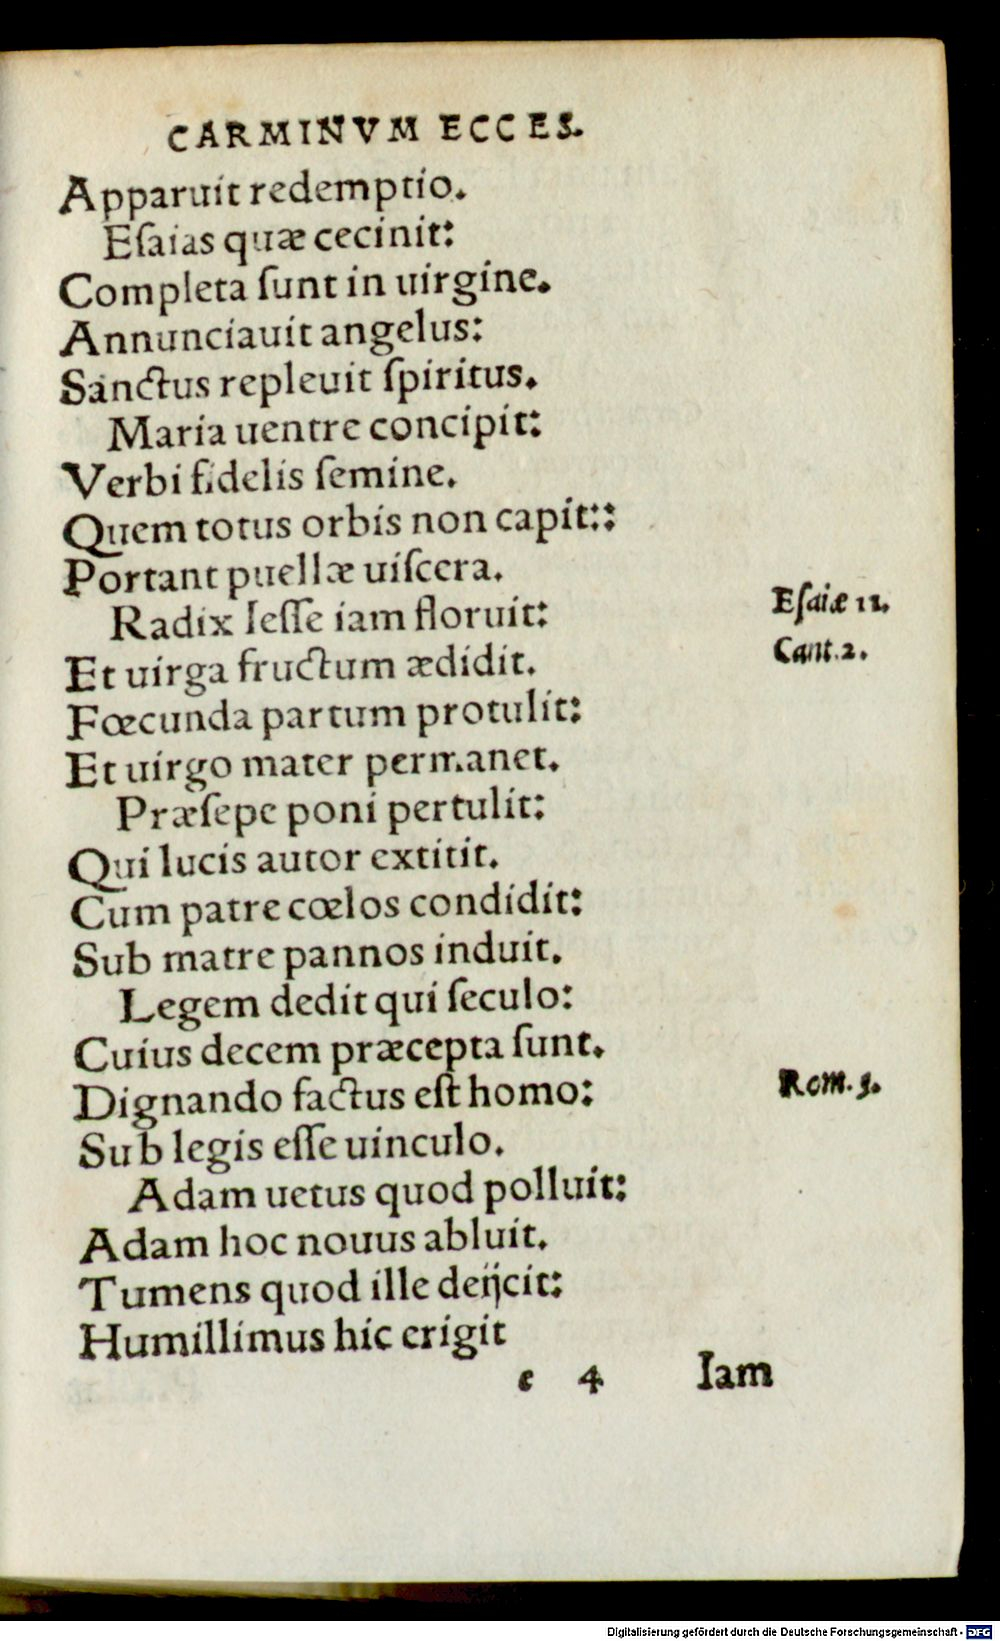 CARMINVM ECCES.
Apparuit redemptio.
Eſaias quæ cecinit:
Completa ſunt in uirgine.
Annunciauit angelus:
Sanctus repleuit ſpiritus.
Maria uentre concipit:
Verbi fidelis ſemine.
Quem totus orbis non capit::
Portant puellæ uiſcera.
Radix Ieſſe iam floruit:
Eſaiæ 11.
Et uirga fructum ædidit.
Cant. 2.
Fœcunda partum protulit:
Et uirgo mater permanet.
Præſepe poni pertulit:
Qui lucis autor extitit.
Cum patre cœlos condidit:
Sub matre pannos induit.
Legem dedit qui ſeculo:
Cuius decem præcepta ſunt.
Dignando factus eſt homo:
Rom. 5.
Sub legis eſſe uinculo.
Adam uetus quod polluit:
Adam hoc nouus abluit.
Tumens quod ille deijcit:
Humillimus hic erigit
e 4 Iam
Digitalisierung gefördert durch die Deutsche Forschungsgemeinschaft - DFG